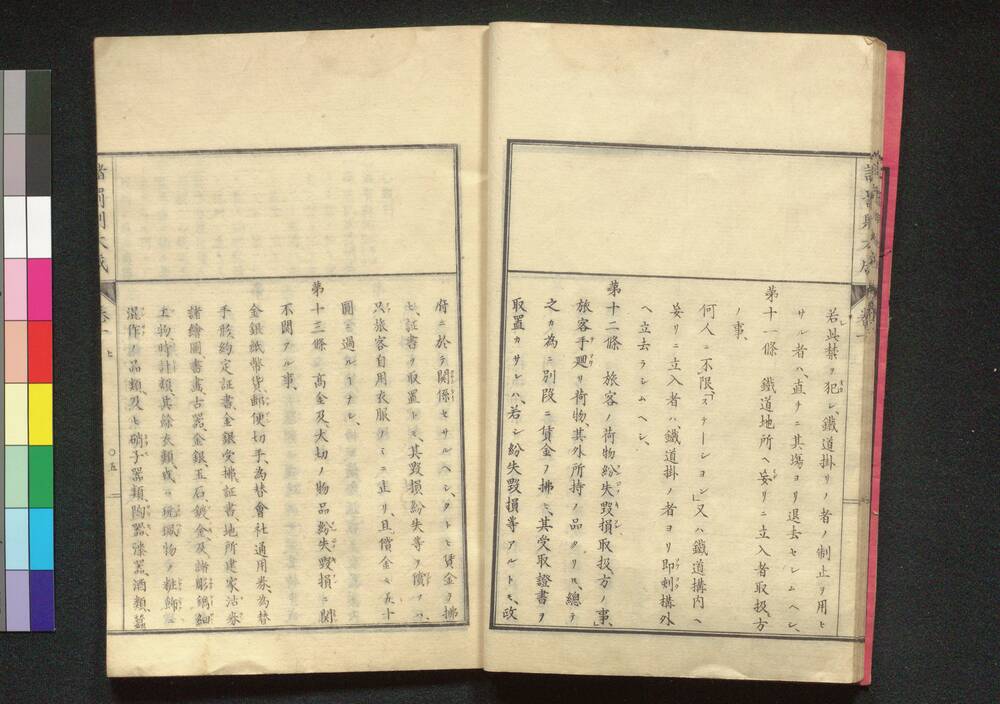 若此禁ヲ犯シ鐵道掛リノ者ノ制止ヲ用ヒ
サル者ハ直チニ其塲ヨリ退去セシムヘシ、
第十一條　鐵道地所ヘ妄リニ立入者取扱方
ノ事、
何人ニ不限「ステーション」又ハ鐵道構内ヘ
妄リニ立入者ハ、鐵道掛ノ者ヨリ即刻構外
ヘ立去ラシムヘシ、
第十二條　旅客ノ荷物紛失毀損取扱方ノ事、
旅客手廻リ荷物、其外所持ノ品タリ𪜈、總テ
之カ為ニ別段ニ賃金ヲ拂ヒ、其受取證書ヲ
取置カサレハ、若シ紛失毀損等アルトモ、政
府ニ於テ關係セサルヘシ、タトヒ賃金ヲ拂
ヒ、証書ヲ取置トモ、其毀損紛失等ヲ償フハ、
只旅客自用衣服ノミニ止リ、且償金モ五十
圓ニ過ルヿナシ、
第十三條　高金及大切ノ物品紛失毀損ニ關
不関アル事、
金銀紙幣貨、郵便切手、為替會社通用券、為替
手形、約定証書、金銀受拂証書地所建家沽券
諸繪圖、書畫、古器、金銀、玉石、鍍金及諸彫鏤細
工物時計類其餘衣類或ハ玩物ノ粧飾
混作ノ品類、及ヒ硝子器類、陶器漆器、酒類、
卷一